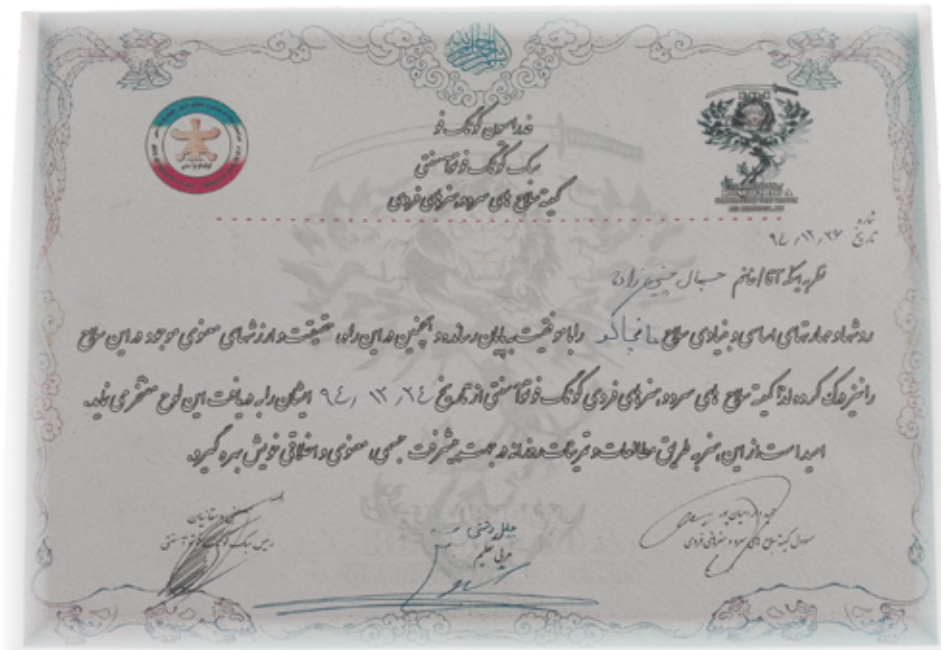 فدراسیون کونگ فو
سبک کونگ فو توآ سنتی
کمیته سلاح های سرد و هنرهای فردی
شماره
تاریخ ۹۴/۱۲/۲۴
نظر به اینکه آقا/خانم
روشها و مهارتهای اساسی و بنیادی سلاح نانچاکو را با موفقیت به پایان رسانده و همچنین در این راه، حقیقت و ارزشهای معنوی موجود در این سلاح
را نیز درک کرده لذا کمیته سلاح های سرد و هنرهای فردی کونگ فو توآ سنتی از تاریخ ۹۴/۱۲/۲۴ ایشان را به دریافت این لوح مفتخر می نماید.
امید است از این هنر به طریق مطالعات و تمرینات روزانه در جهت پیشرفت جسمی، معنوی و اخلاقی خویش بهره گیرد.
مسئول کمیته سلاح های سرد و هنرهای فردی
مربی تعلیم
رئیس سبک کونگ فو توآ سنتی